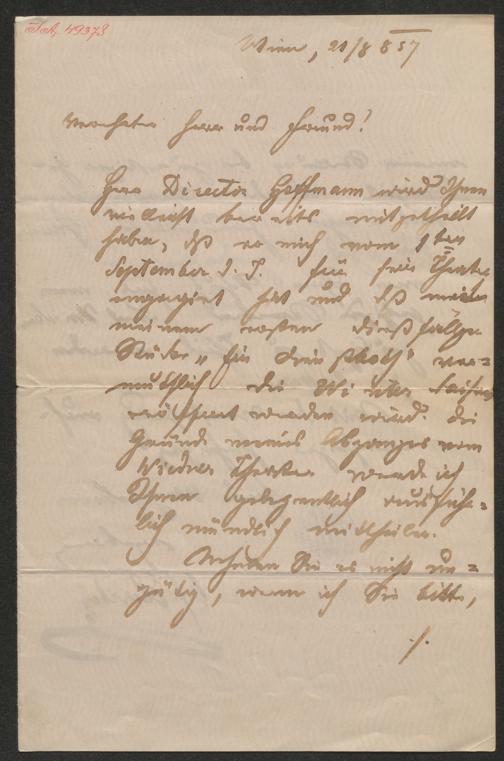 Wien, 21/8 857
Verehrter Herr und Freund!
Herr Director Hoffmann wird Ihnen
vielleicht bereits mitgetheilt
haben, daß er mich vom 1ten
September d. J. für sein Theater
engagirt hat und daß mit
meinem ersten dießfälligen
Stücke „ Ein Drei " ver=
muthlich die Winter Saison
eröffnet werden wird. Die
Gründe meines Abganges vom
Wiedner Theater werde ich
Ihnen gelegentlich ausführ=
lich mündlich mittheilen.
Nehmen Sie es nicht un=
gütig, wenn ich Sie bitte,
./.